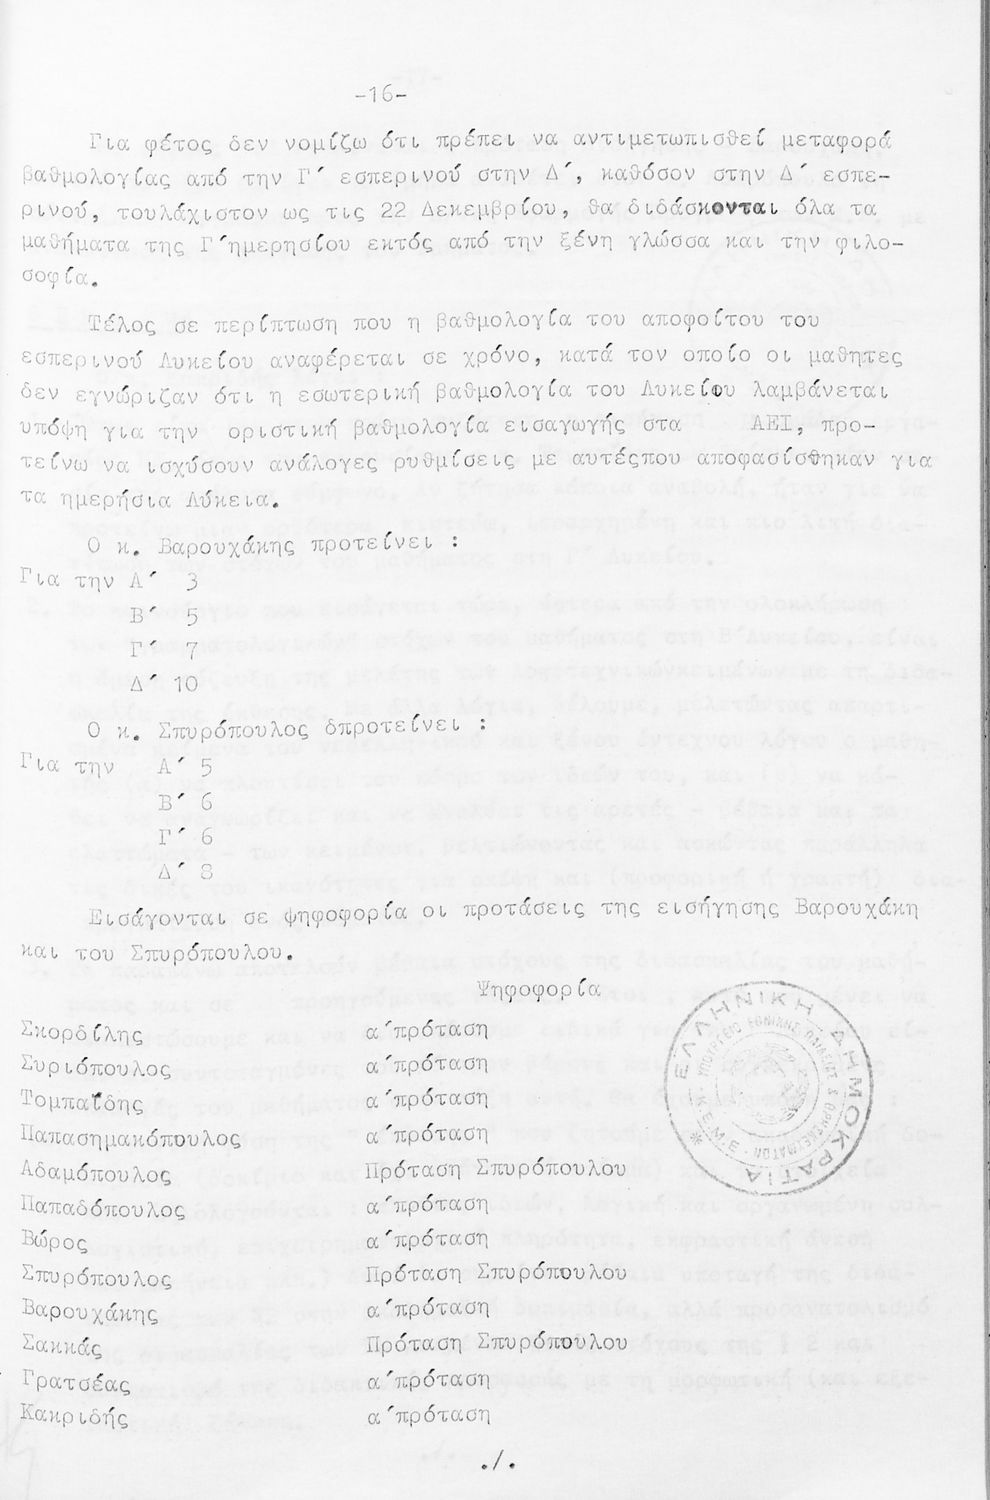 -16-
Για φέτος δεν νομίζω ότι πρέπει να αντιμετωπισθεί μεταφορά
βαθμολογίας από την Γ΄ εσπερινού στην Δ΄, καθόσον στην Δ΄ εσπε-
ρινού, τουλάχιστον ως τις 22 Δεκεμβρίου, θα διδάσκονται όλα τα
μαθήματα της Γ΄ημερησίου εκτός από την ξένη γλώσσα και την φιλο-
σοφία.
Τέλος σε περίπτωση που η βαθμολογία του αποφοίτου του
εσπερινού Λυκείου αναφέρεται σε χρόνο, κατά τον οποίο οι μαθητες
δεν εγνώριζαν ότι η εσωτερική βαθμολογία του Λυκείου λαμβάνεται
υπόψη για την οριστική βαθμολογία εισαγωγής στα ΑΕΙ, προ-
τείνω να ισχύσουν ανάλογες ρυθμίσεις με αυτέςπου αποφασίσθηκαν για
τα ημερήσια Λύκεια.
Ο κ. Βαρουχάκης προτείνει :
Για την Α΄ 3
Β΄ 5
Γ΄ 7
Δ΄ 10
Ο κ. Σπυρόπουλος δπροτείνει :
Για την Α΄ 5
Β΄ 6
Γ΄ 6
Δ΄ 8
Εισάγονται σε ψηφοφορία οι προτάσεις της εισήγησης Βαρουχάκη
και του Σπυρόπουλου.
Ψηφοφορία
Σκορδίλης α΄πρόταση
Συριόπουλος α΄πρόταση
Τομπαΐδης α΄πρόταση
Παπασημακόπουλος α΄πρόταση
Αδαμόπουλος Πρόταση Σπυρόπουλου
Παπαδόπουλος α΄πρόταση
Βώρος α΄πρόταση
Σπυρόπουλος Πρόταση Σπυρόπουλου
Βαρουχάκης α΄πρόταση
Σακκάς Πρόταση Σπυρόπουλου
Γρατσέας α΄πρόταση
Κακριδής α΄πρόταση
./.
ΕΛΛΗΝΙΚΗ ΔΗΜΟΚΡΑΤΙΑ